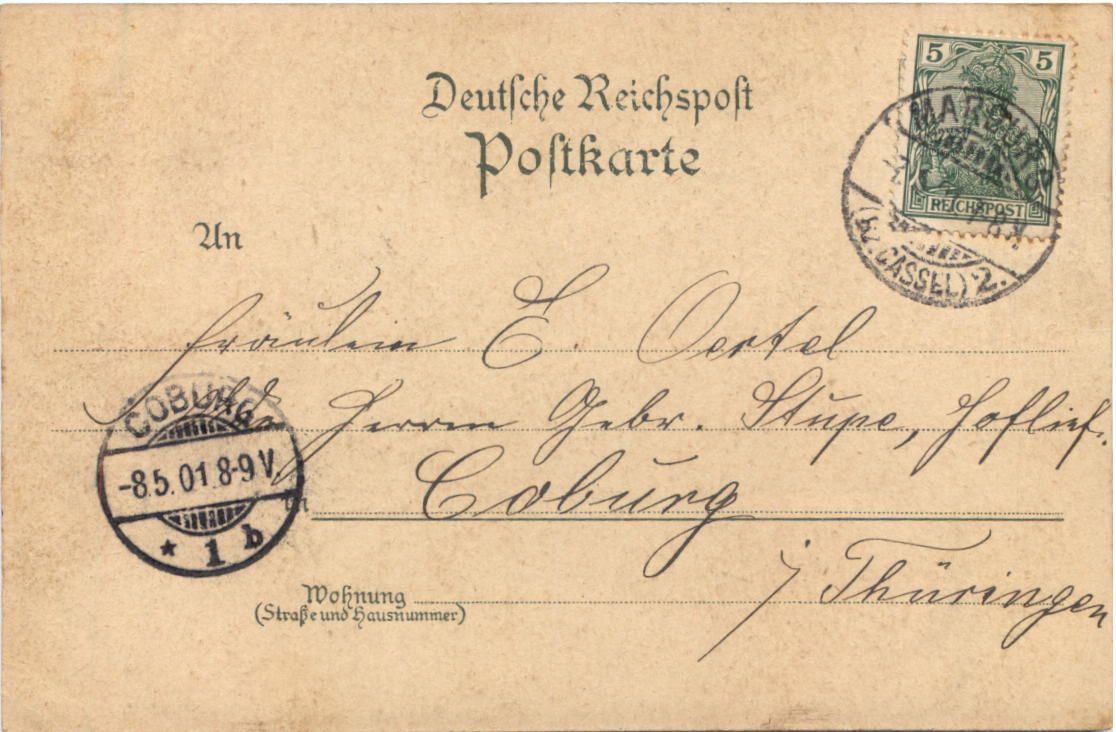 5 5
Deutsche Reichspost
Postkarte
REICHSPOST
MARBURG
(BZ. CASSEL) 2.
An
Fräulein E. Oertel
Herrn Gebr. Stupe, Hoflief.
COBURG
-8.5.01.8-9V.
* 1 b
in Coburg
i/ Thüringen
Wohnung
(Straße und Hausnummer)